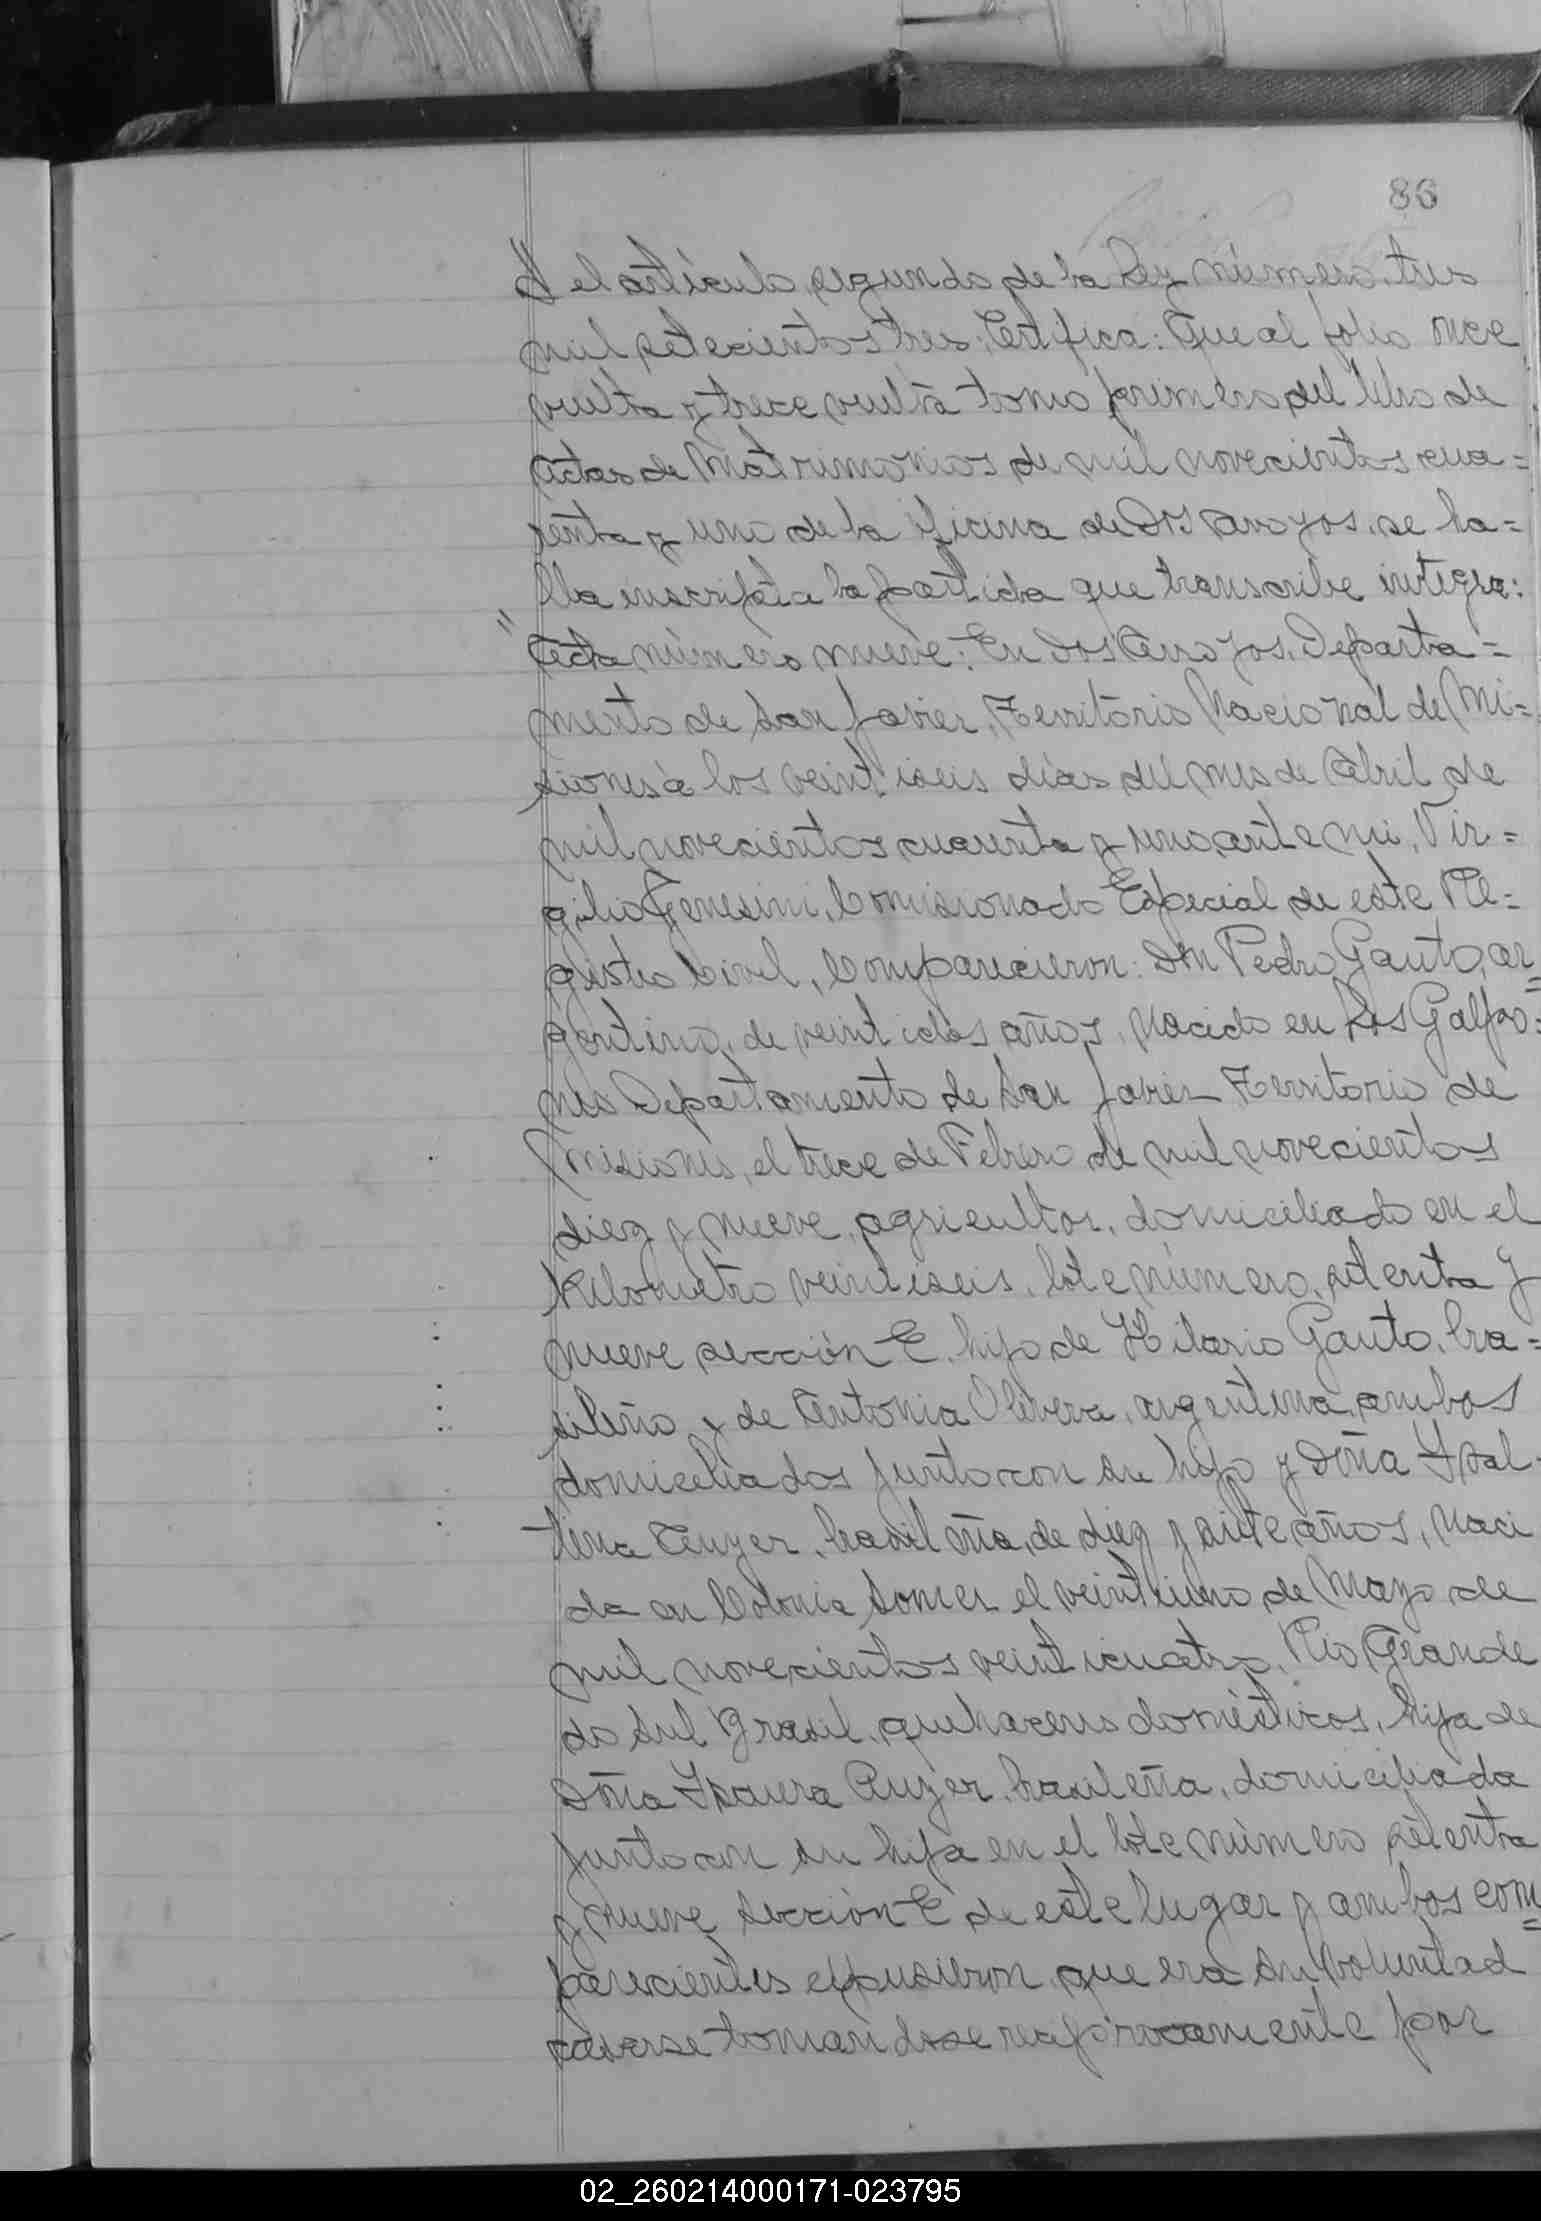 86
el artículo segundo de la Ley número tres
mil setecientos tres; Certifica: Que al folio once
vuelta y trece vuelta tomo primero del libro de
actas de Matrimonios de mil novecientos cua=
renta y uno de la oficina de Dos Arroyos, se ha=
lla inscripta la partida que transcribe integra:
"Acta número nueve: En Dos Arroyos, Departa=
mento de San Javier, Territorio Nacional de Mi=
siones á los veintiseis días del mes de Abril de
mil novecientos cuarenta y uno, ante mi, Vir=
gilio Genesini, Comisionado Especial de este Re=
gistro Civil, Comparecieron: Don Pedro Gauto, ar=
gentino, de veintidos años, nacido en Los Galpo=
nes Departamento de San Javier Territorio de
Misiones, el trece de Febrero de mil novecientos
diez y nueve, agricultor, domiciliado en el
Kilometro veintiseis, lote número setenta y
nueve sección E. hijo de Hilario Gauto, bra=
sileño y de Antonia Olivera, argentina, ambos
domiciliados junto con su hijo y Doña Ysal-
tina Auzer, brasileña, de diez y siete años, naci
da en Colonia Somer el veintiuno de Mayo de
mil novecientos veinticuatro, Rio Grande
do Sul Brasil, quehaceres domésticos, hija de
Doña Ysaura Auzer, brasileña, domiciliada
junto con su hija en el lote número setenta
y nueve sección E de este lugar y ambos com=
parecientes expusieron que era su voluntad
casarse tomandose reciprocamente por
02_260214000171-023795